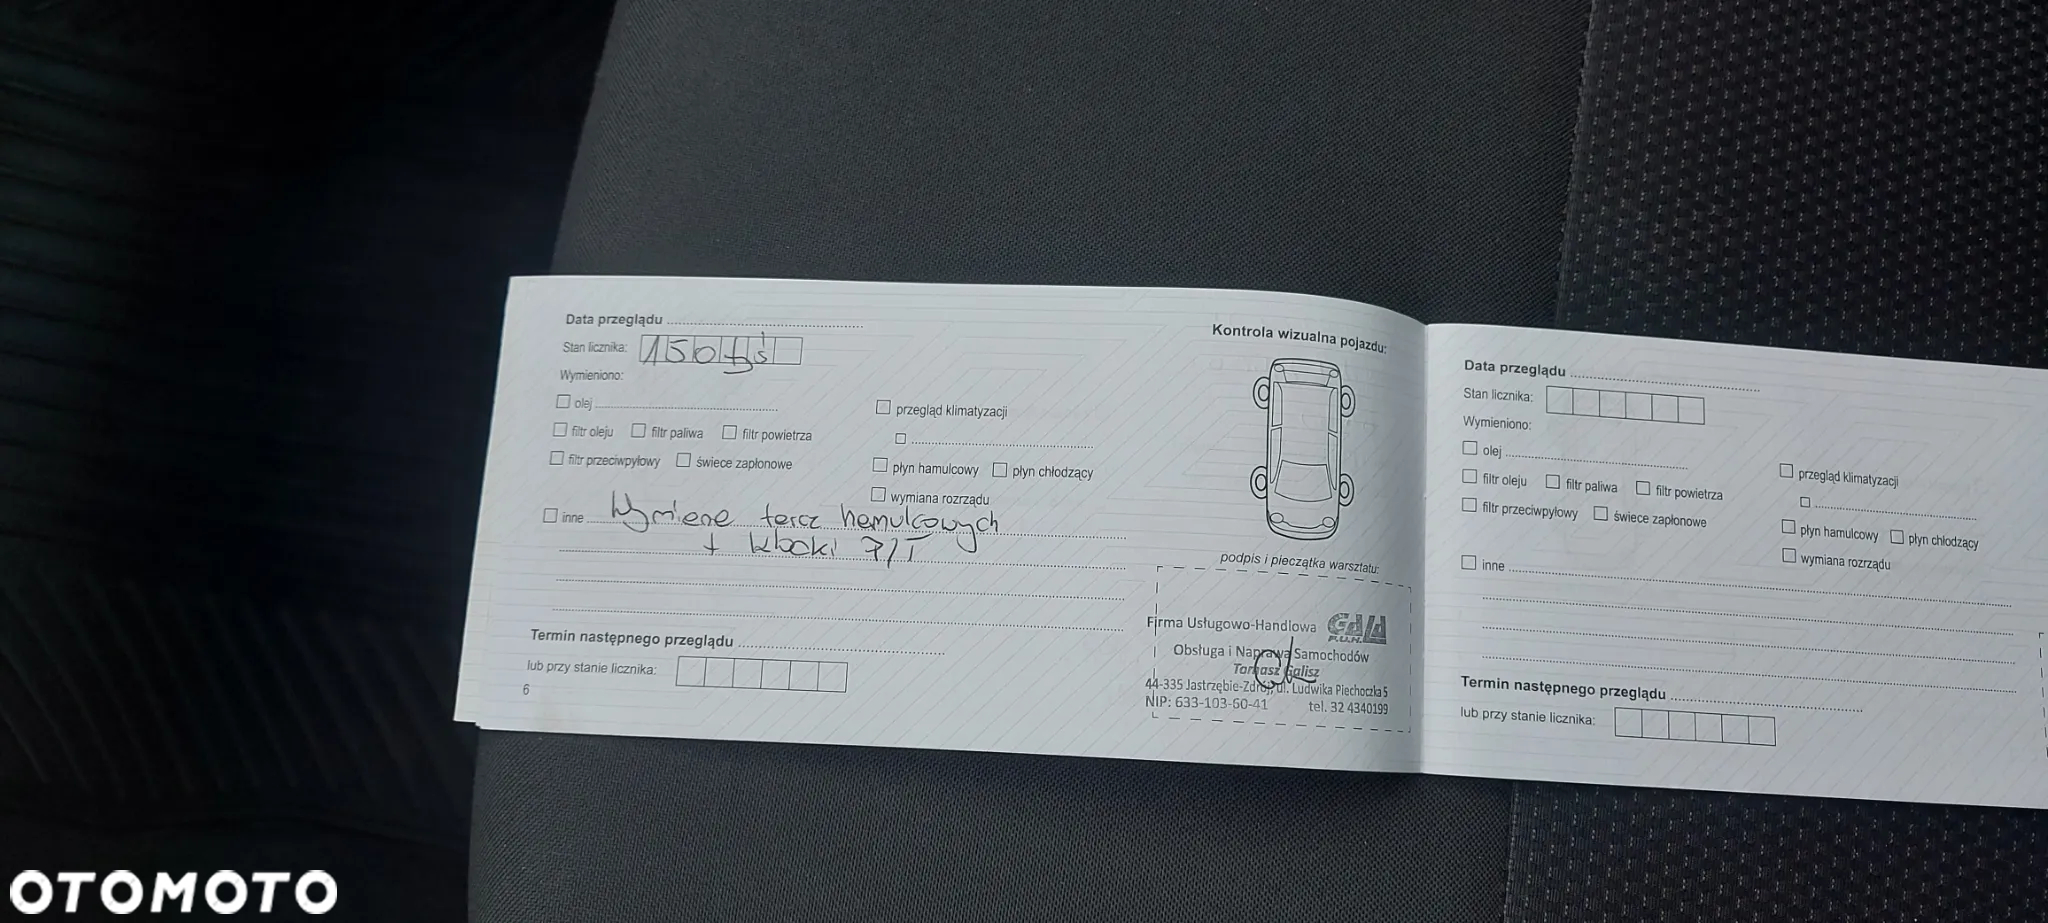 Data przeglądu
Stan licznika: 150 tyś
Wymieniono:
olej
filtr oleju filtr paliwa filtr powietrza
filtr przeciwpyłowy świece zapłonowe
przegląd klimatyzacji
płyn hamulcowy płyn chłodzący
wymiana rozrządu
inne Wymiene tercz hemulcowych
+ klocki P/T
Termin następnego przeglądu
lub przy stanie licznika:
6
Kontrola wizualna pojazdu:
podpis i pieczątka warsztatu:
Firma Usługowo-Handlowa
GaLa
F.U.H.
Obsługa i Naprawa Samochodów
Galisz
44-335 Jastrzębie-Zdrój, ul. Ludwika Piechoczka 5
NIP: 633-103-60-41 tel. 32 4340199
Data przeglądu
Stan licznika:
Wymieniono:
olej
filtr oleju filtr paliwa filtr powietrza
filtr przeciwpyłowy świece zapłonowe
przegląd klimatyzacji
płyn hamulcowy płyn chłodzący
wymiana rozrządu
inne
Termin następnego przeglądu
lub przy stanie licznika:
OTOMOTO